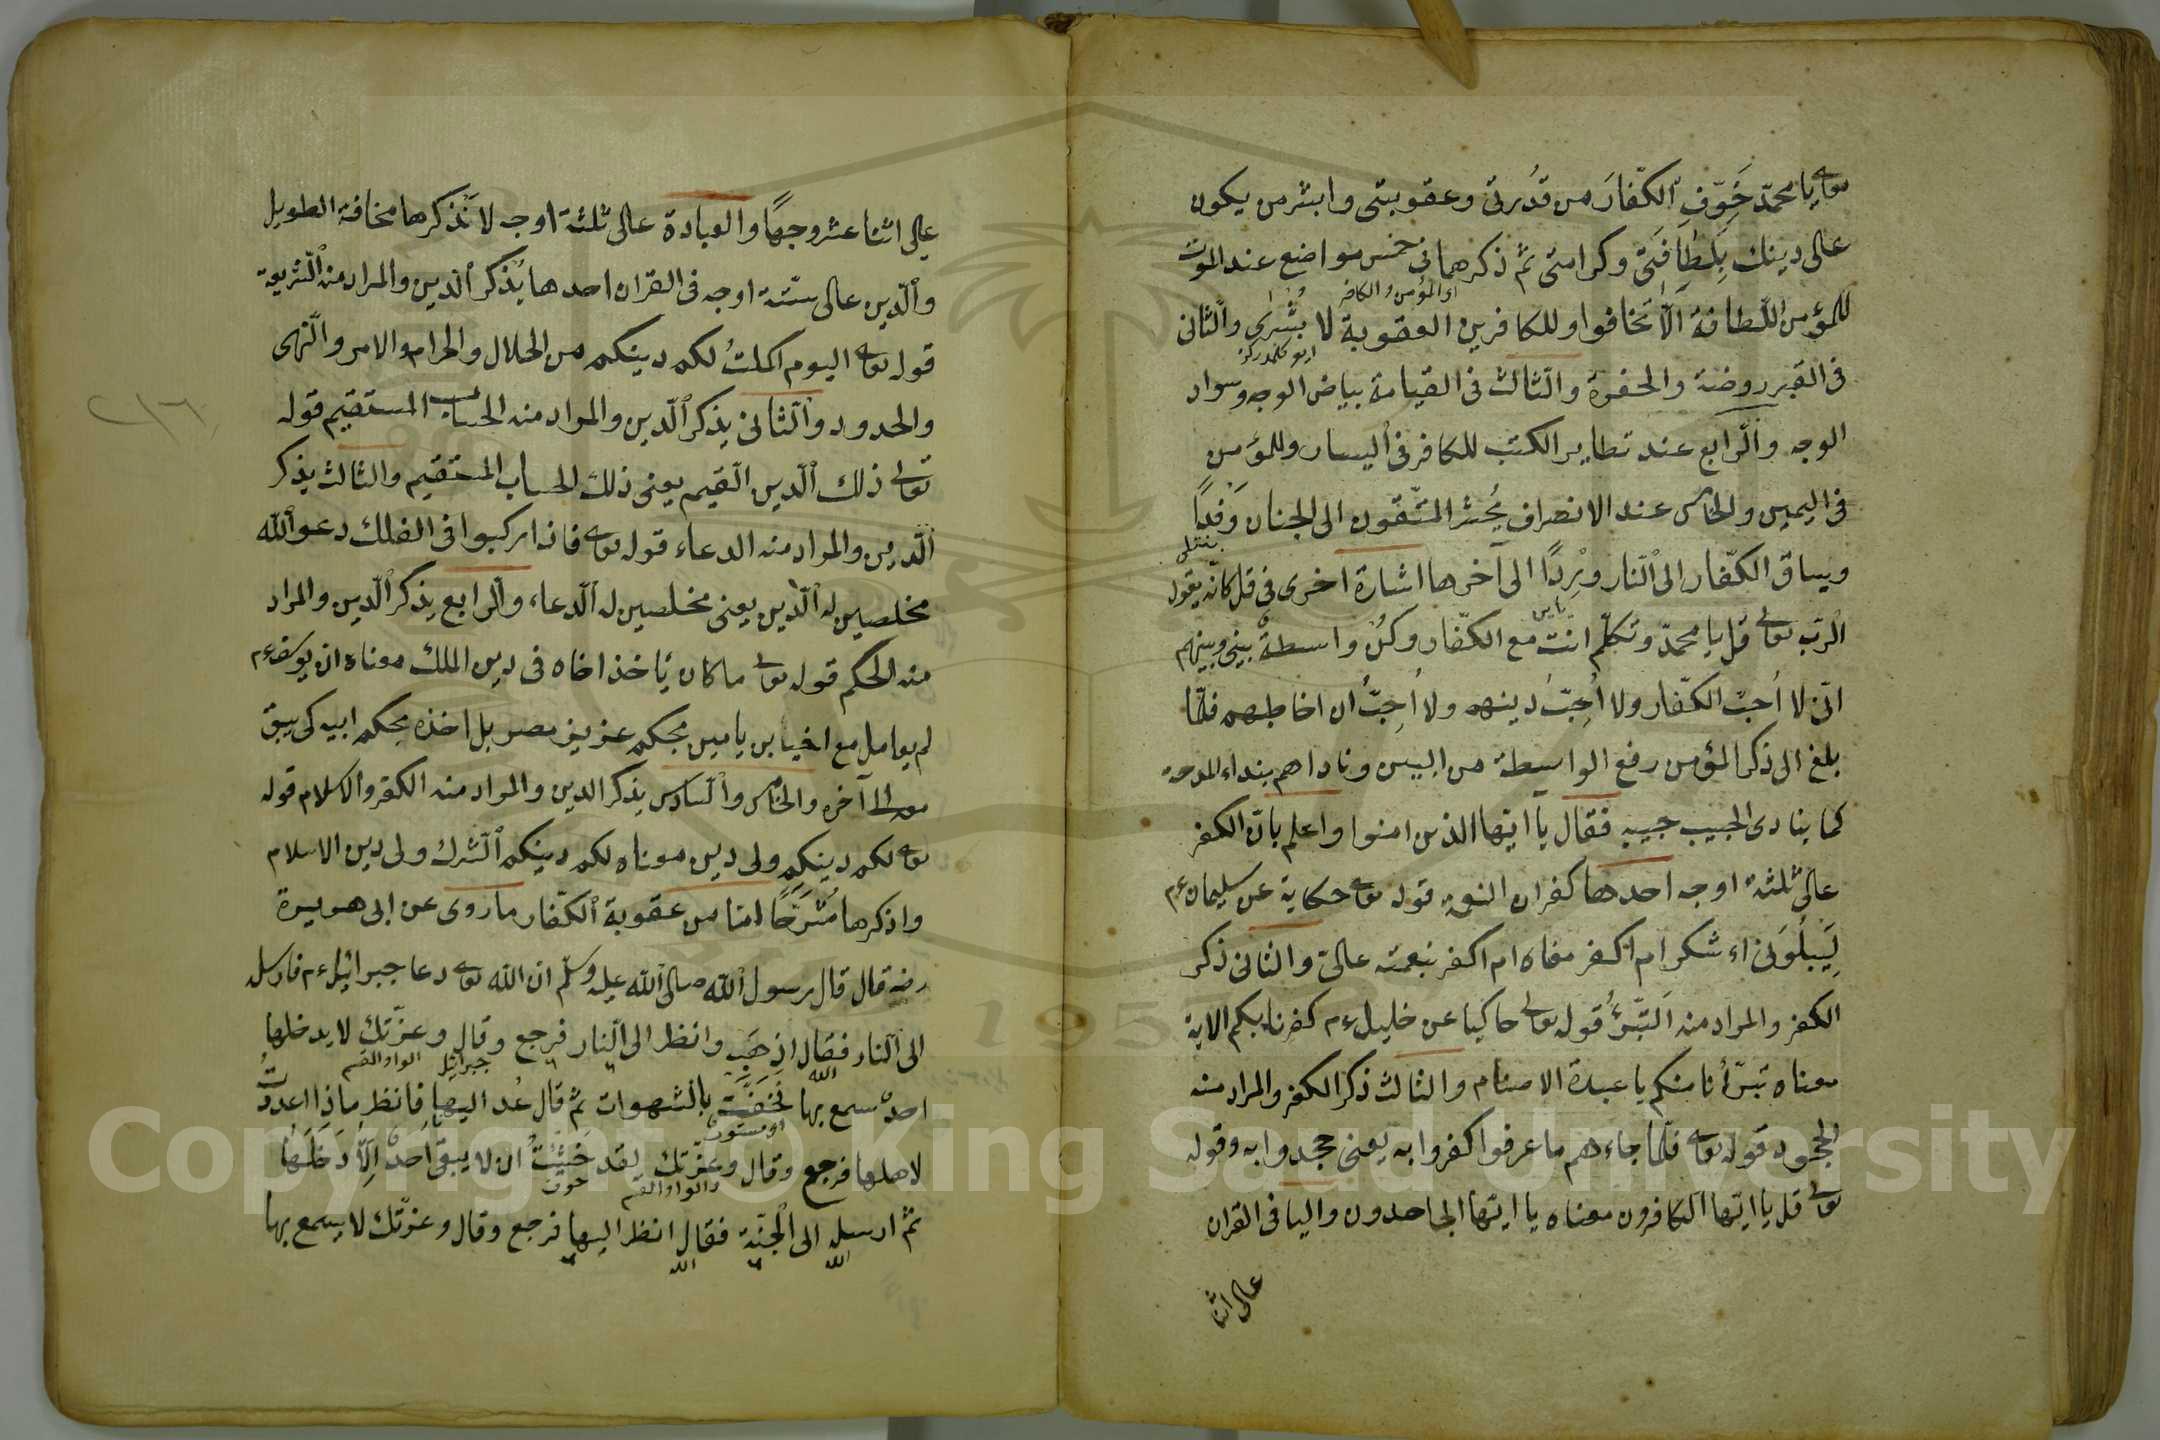 تعالى يا محمد خَوِّفِ الكفّارَ من قُدرتى وعقوبتى وابشر من يكون
على دينك بِلَطَافَتى وكرامتى ثم ذكرهما فى خمس مواضع عند الموت
اى المؤمن والكافر
للمؤمن اللطافة اَلَّا تخافوا وللكافرين العقوبة لا بُشْرٰى والثانى
فى القبر روضة والحفرة والثالث فى القيامة بياض الوجه وسواد
الوجه والرابع عند تطاير الكتب للكافر فى اليسار وللمؤمن
فى اليمين والخامس عند الانصراف يُحشر المتّقون الى الجنان وَفْدًا
ويساق الكفّار الى النار وِرْدًا الى آخرها اشارة اخرى فى قل كانّه يقول
الرب تعالى قل يا محمد وتكلّم انت مع الكفّار وكُنْ واسطةً بينى وبينهم
انّى لا اُحبّ الكفّار ولا اُحِبُّ دينهم ولا اُحِبُّ ان اخاطبهم فلمّا
بلغ الى ذكر المؤمن رفع الواسطة من البين وناداهم بنداء المدحة
كما ينادى الحبيب حبيبه فقال يا ايها الذين امنوا واعلم بانّ الكفر
على ثلثة اوجه احدها كفران النعمة قوله تعالى حكاية عن سليمان ع م
لِيَبلُوَنى ءاشكر ام اكفر معناه ام اكفر بنعمته علىّ والثانى ذكر
الكفر والمراد منه اَلتبَرُّؤُ قوله تعالى حاكيا عن خليل ع م كفرنا بكم الاية
معناه تبرّأنا منكم يا عبدة الاصنام والثالث ذكر الكفر والمراد منه
الجحود قوله تعالى فلمّا جاءهم ما عرفوا كفروا به يعنى جحدوا به وقوله
تعالى قل يا ايّها الكافرون معناه يا ايّها الجاحدون واليا فى القران
على اثنا
على اثنا عشر وجهًا والعبادة على ثلثة اوجه لا نذكرها مخافة الطويل
والدين على ستّة اوجه فى القران احدها يُذكر الدين والمراد منه الشريعة
قوله تعالى اليوم اكملتُ لكم دينكم من الحلال والحرام والامر والنهى
والحدود والثانى يذكر الدين والمراد منه الحساب المستقيم قوله
تعالى ذلك الدين القيم يعنى ذلك الحساب المستقيم والثالث يذكر
الدين والمراد منه الدعاء قوله تعالى فاذا ركبوا فى الفلك دعوا الله
مخلصين له الدين يعنى مخلصين له الدعاء والرابع يذكر الدين والمراد
منه الحكم قوله تعالى ما كان ليأخذ اخاه فى دين الملك معناه ان يوسف ع م
لم يعامل مع اخيه ابن يامين بحكم عزيز مصر بل اخذه بحكم ابيه كى يبقى
معه الى آخره والخامس والسادس يذكر الدين والمراد منه الكفر والاسلام قوله
تعالى لكم دينكم ولى دين معناه لكم دينكم الشرك ولى دين الاسلام
واذكرها مُشَرَّحًا امّا من عقوبة الكفّار ما روى عن ابى هريرة
رضه قال قال رسول الله صلى الله عليه وسلم ان الله تعالى دعا جبرائيل ع م فارسله
الى النار فقال اذهب وانظر الى النار فرجع وقال وعزّتك لا يدخلها
الله جبرائيل الواو القسم
احدٌ سمع بها فَحَفَّتْ بالشهوات ثم قال عُد اليها فانظر ماذا اعددتُ
لاهلها فرجع وقال وعزّتك لقد خشيتُ ان لا يبقى احدٌ اِلَّا دَخَلَهَا
والواو القسم خوف
ثم ارسله الى الجنّة فقال انظر اليها فرجع وقال وعزّتك لا يسمع بها
الله الله
٢١٦
Copyright © King Saud University
195